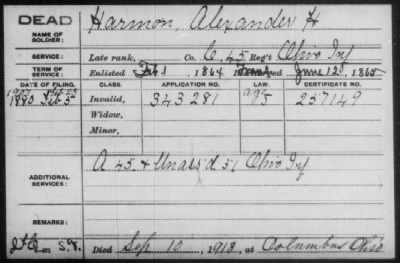 DEAD
NAME OF SOLDIER:
Harmon, Alexander H
SERVICE:
Late rank, Co. C, 45 Reg't Ohio Inf
TERM OF SERVICE:
Enlisted Feb 1, 1864 Discharged June 12, 1865
DATE OF FILING. CLASS. APPLICATION NO. LAW. CERTIFICATE NO.
1880 Feb 5 Invalid, 343281 257149
Widow,
Minor,
ADDITIONAL SERVICES:
A 45 & Unass'd 51 Ohio Inf
REMARKS:
Died Sep 10, 1918, at Columbus Ohio